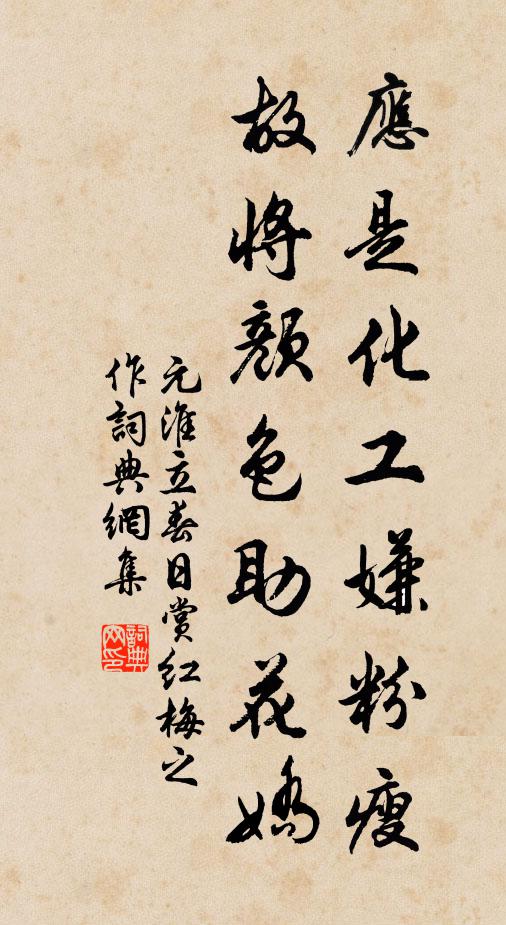 應是化工嫌粉瘦
故將顏色助花嬌
元淮立春日賞紅梅之
作詞典網集
詞典
网印